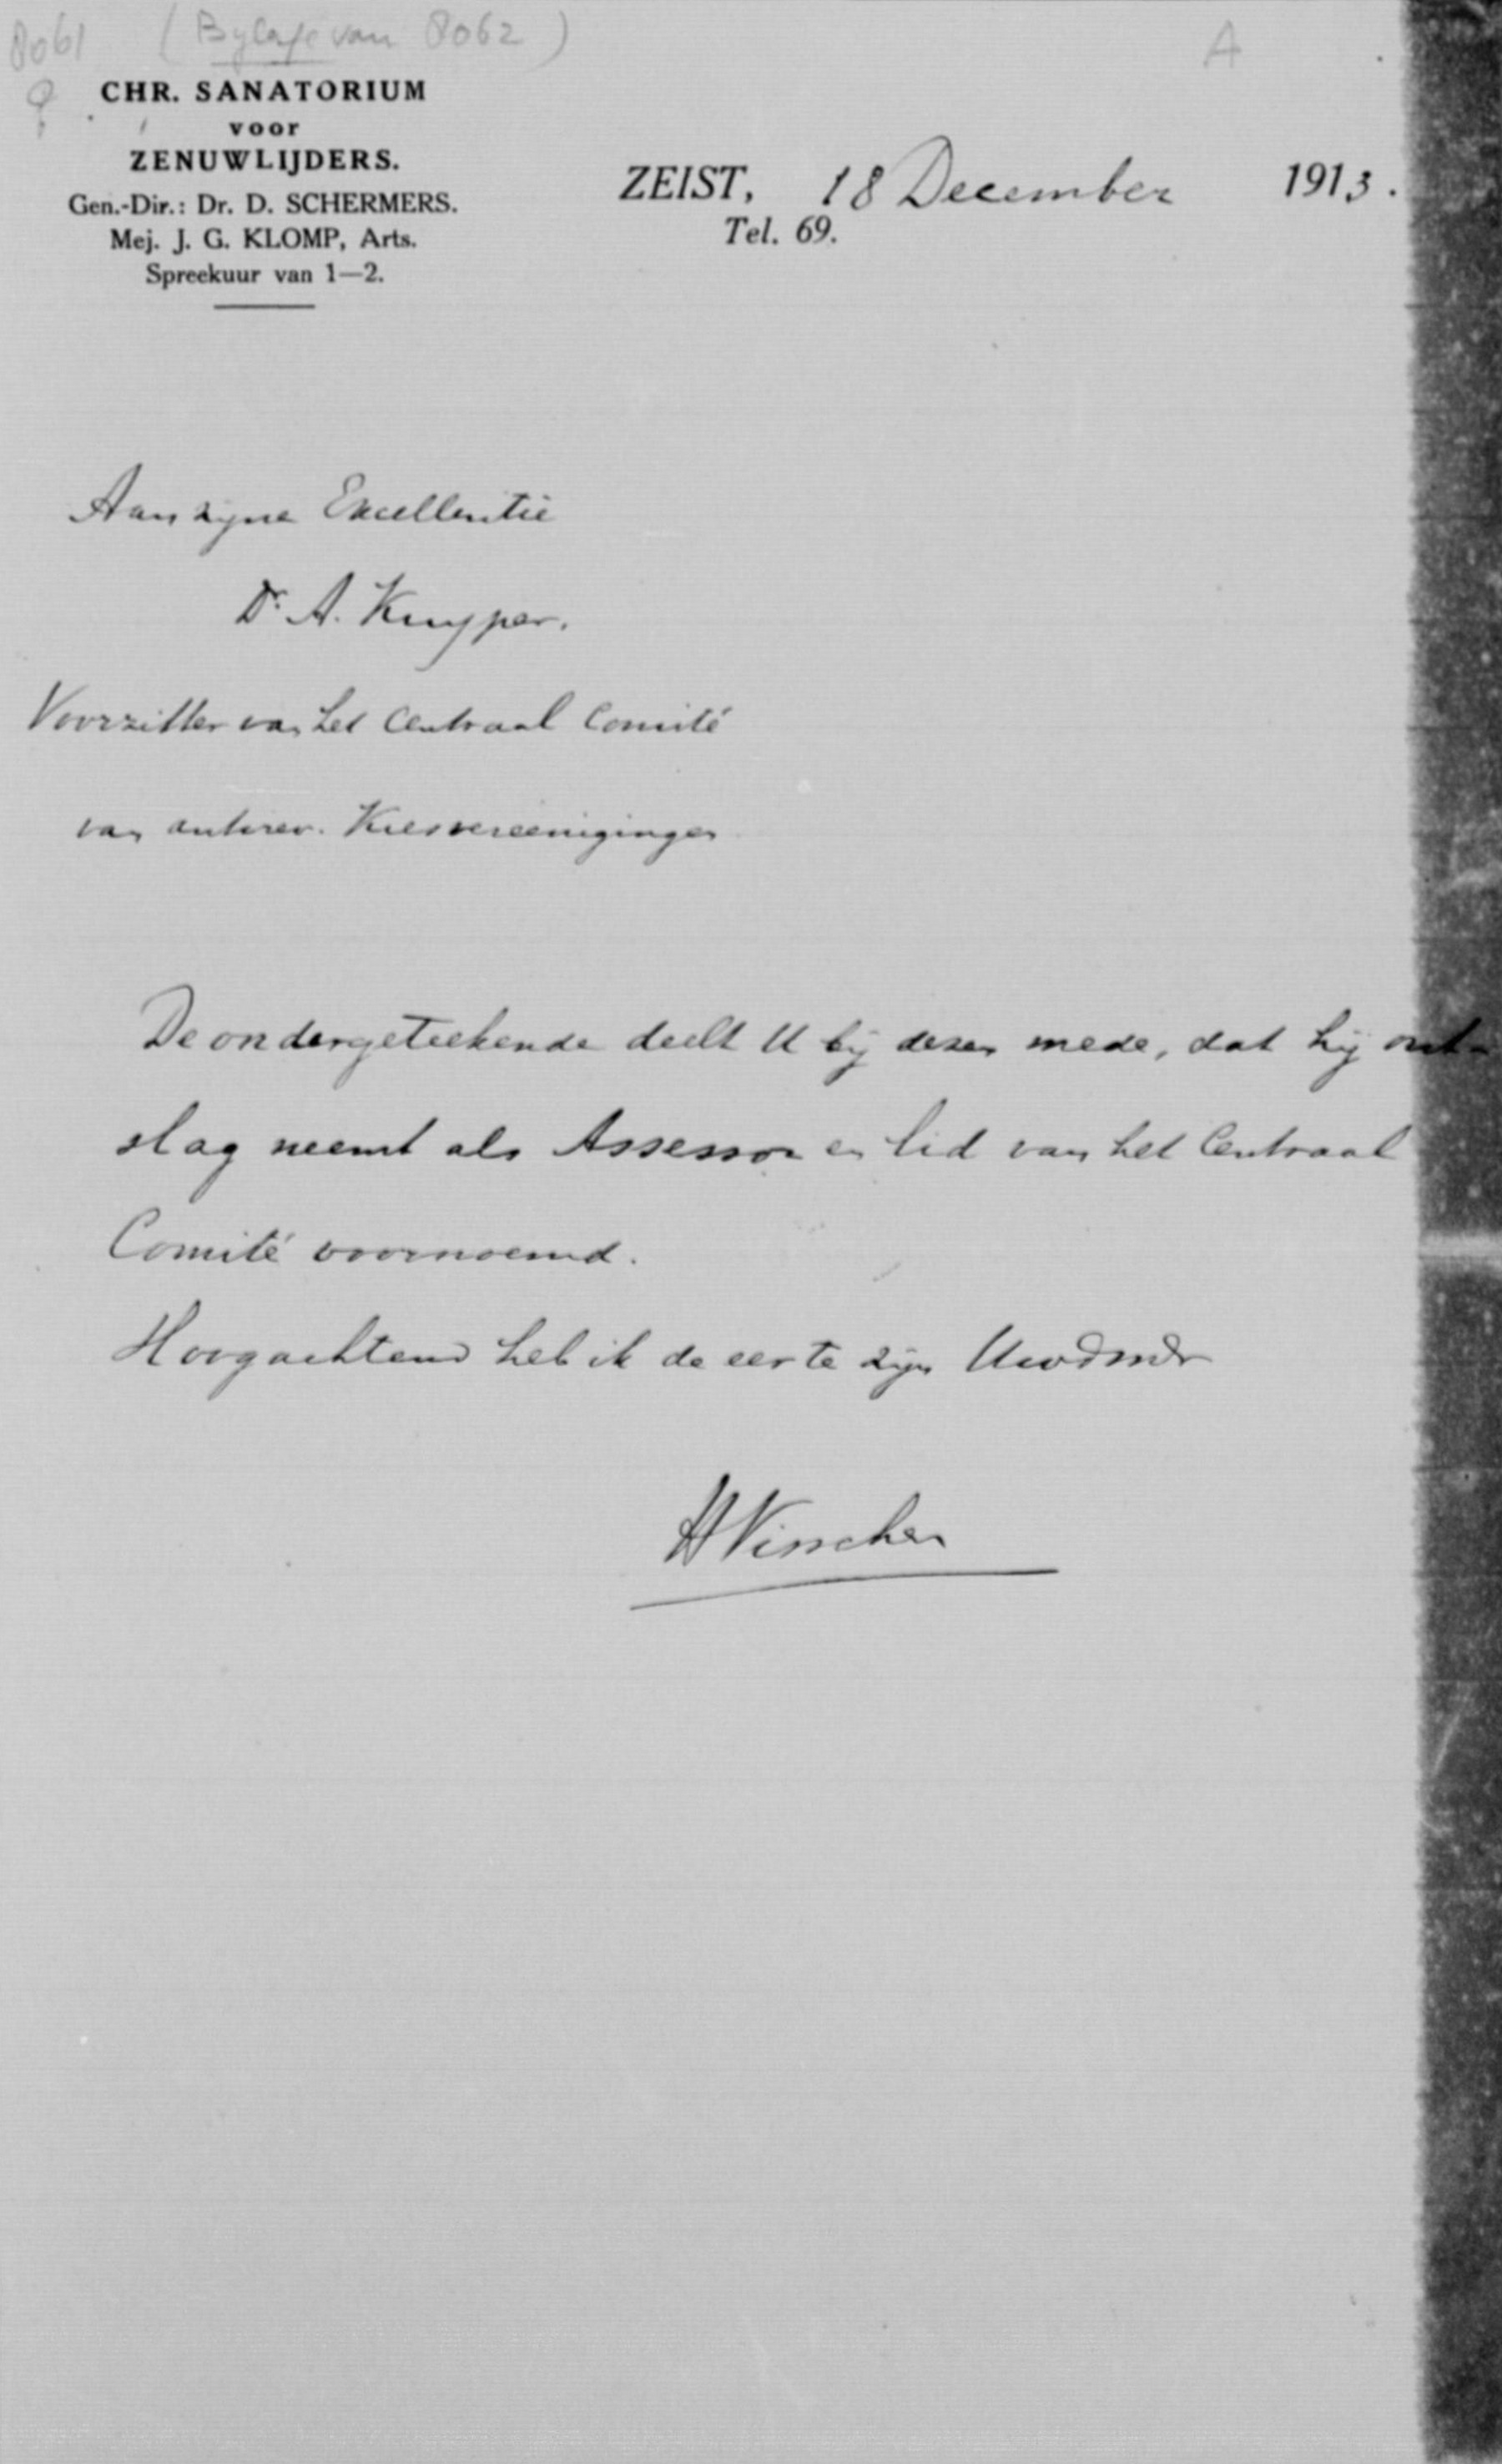 8061 (Bylage van 8062) A
CHR. SANATORIUM
voor
ZENUWLIJDERS.
Gen.-Dir.: Dr. D. SCHERMERS.
Mej. J. G. KLOMP, Arts.
Spreekuur van 1—2.
ZEIST, 18 December 1913.
Tel. 69.
Aan zyne Excellentie
Dr. A. Kuyper.
Voorzitter van het Centraal Comité
van antirev. Kiesvereenigingen
De ondergeteekende deelt U bij dezen mede, dat hij ont-
slag neemt als Assessor en lid van het Centraal
Comité voornoemd.
Hoogachtend heb ik de eer te zijn
HVisscher